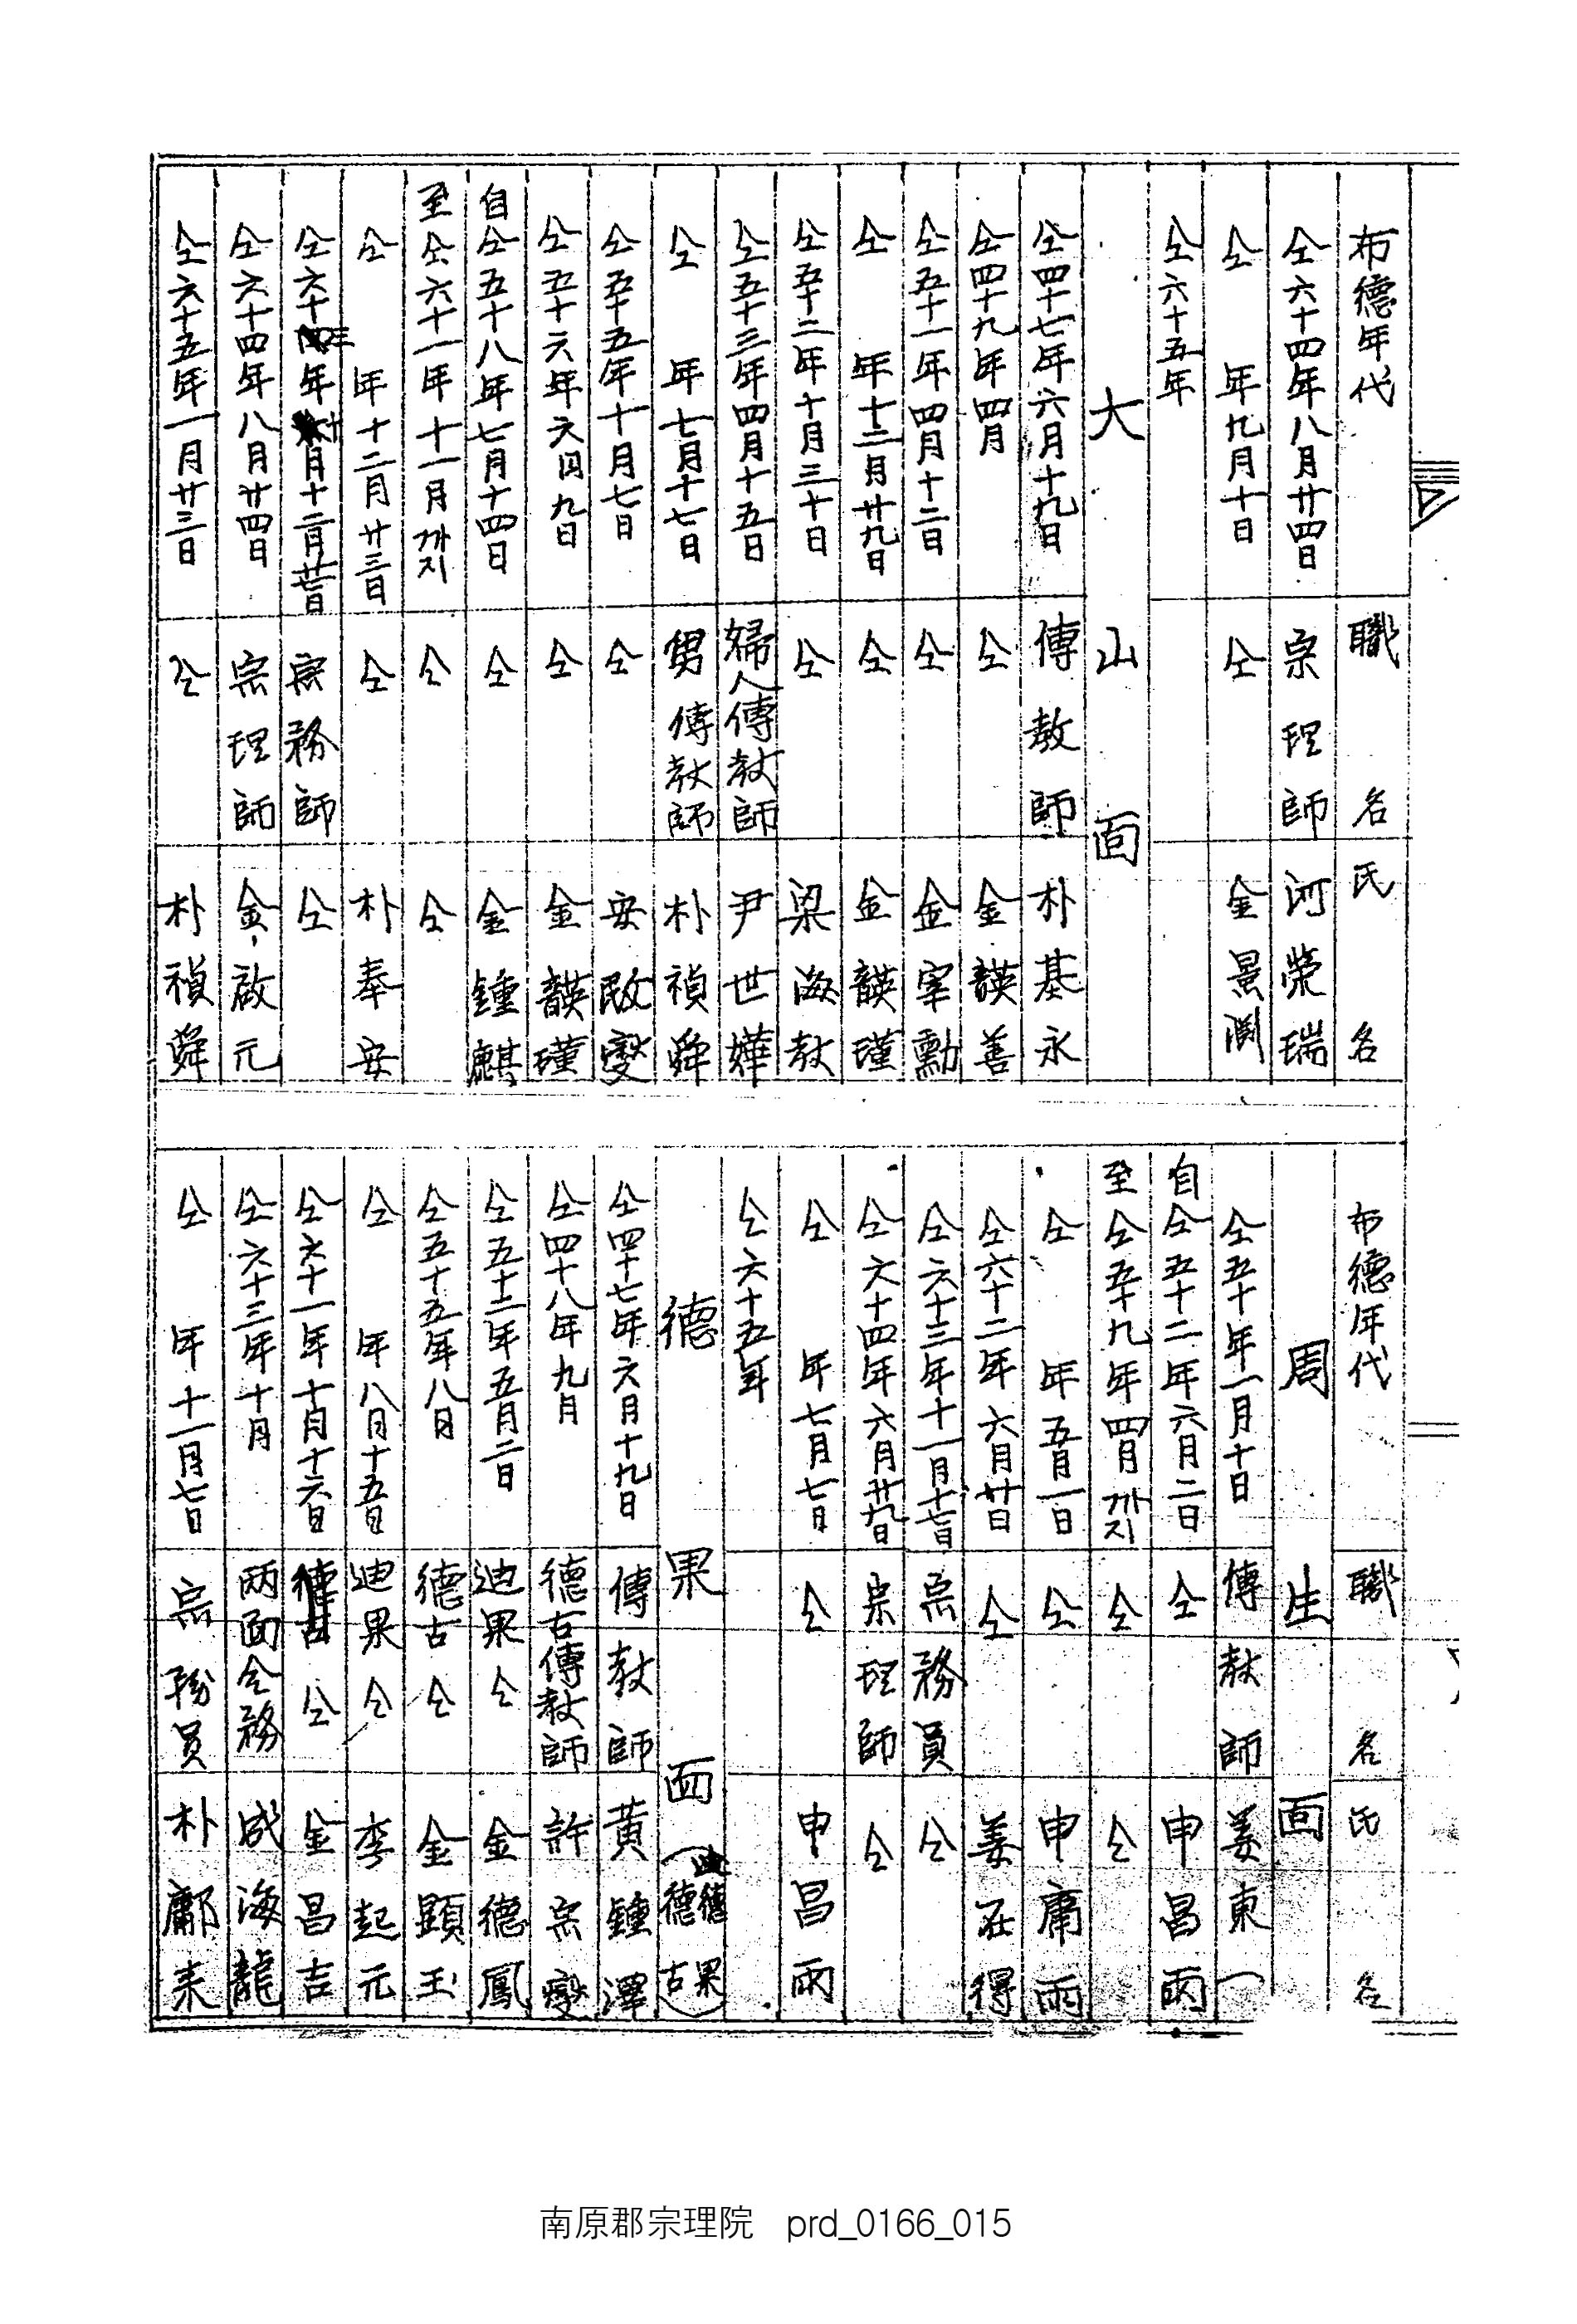 布德年代 職名 氏名
仝六十四年八月廿四日 宗理師 河榮瑞
仝 年九月十日 仝 金景
仝六十五年
大山面
仝四十七年六月十九日 傳教師 朴基永
仝四十九年四月 仝 金韺善
仝五十一年四月十二日 仝 金宰勳
仝 年十二月廿九日 仝 金韺瑾
仝五十二年十月三十日 仝 梁海教
仝五十三年四月十五日 婦人傳教師 尹世嬅
仝 年七月十七日 男傳教師 朴禎舜
仝五十五年十月七日 仝 安啟燮
仝五十六年六月九日 仝 金韺瑾
自仝五十八年七月十四日 仝 金鍾麒
至仝六十一年十一月까지 仝 仝
仝 年十二月廿三日 仝 朴奉安
仝六十三年 十二月廿七日 宗務師 仝
仝六十四年八月廿四日 宗理師 金啟元
仝六十五年一月廿三日 仝 朴禎舜
布德年代 職名 氏名
周生面
仝五十年一月十日 傳教師 姜東一
自仝五十二年六月二日 仝 申昌雨
至仝五十九年四月까지 仝 仝
仝 年五月一日 仝 申庸雨
仝六十二年六月廿日 仝 姜在得
仝六十三年十一月十七日 宗務員 仝
仝六十四年六月廿九日 宗理師 仝
仝 年七月七日 仝 申昌雨
仝六十五年
德果面(德果德古)
仝四十七年六月十九日 傳教師 黃鍾澤
仝四十八年九月 德古傳教師 許宗燮
仝五十二年五月二日 迪果仝 金德鳳
仝五十五年八月 德古仝 金顯玉
仝 年八月十五日 迪果仝 李起元
仝六十一年十月十六日 德古仝 金昌吉
仝六十三年十月 两面仝務 成海龍
仝 年十一月七日 宗務員 朴鄘来
南原郡宗理院 prd_0166_015